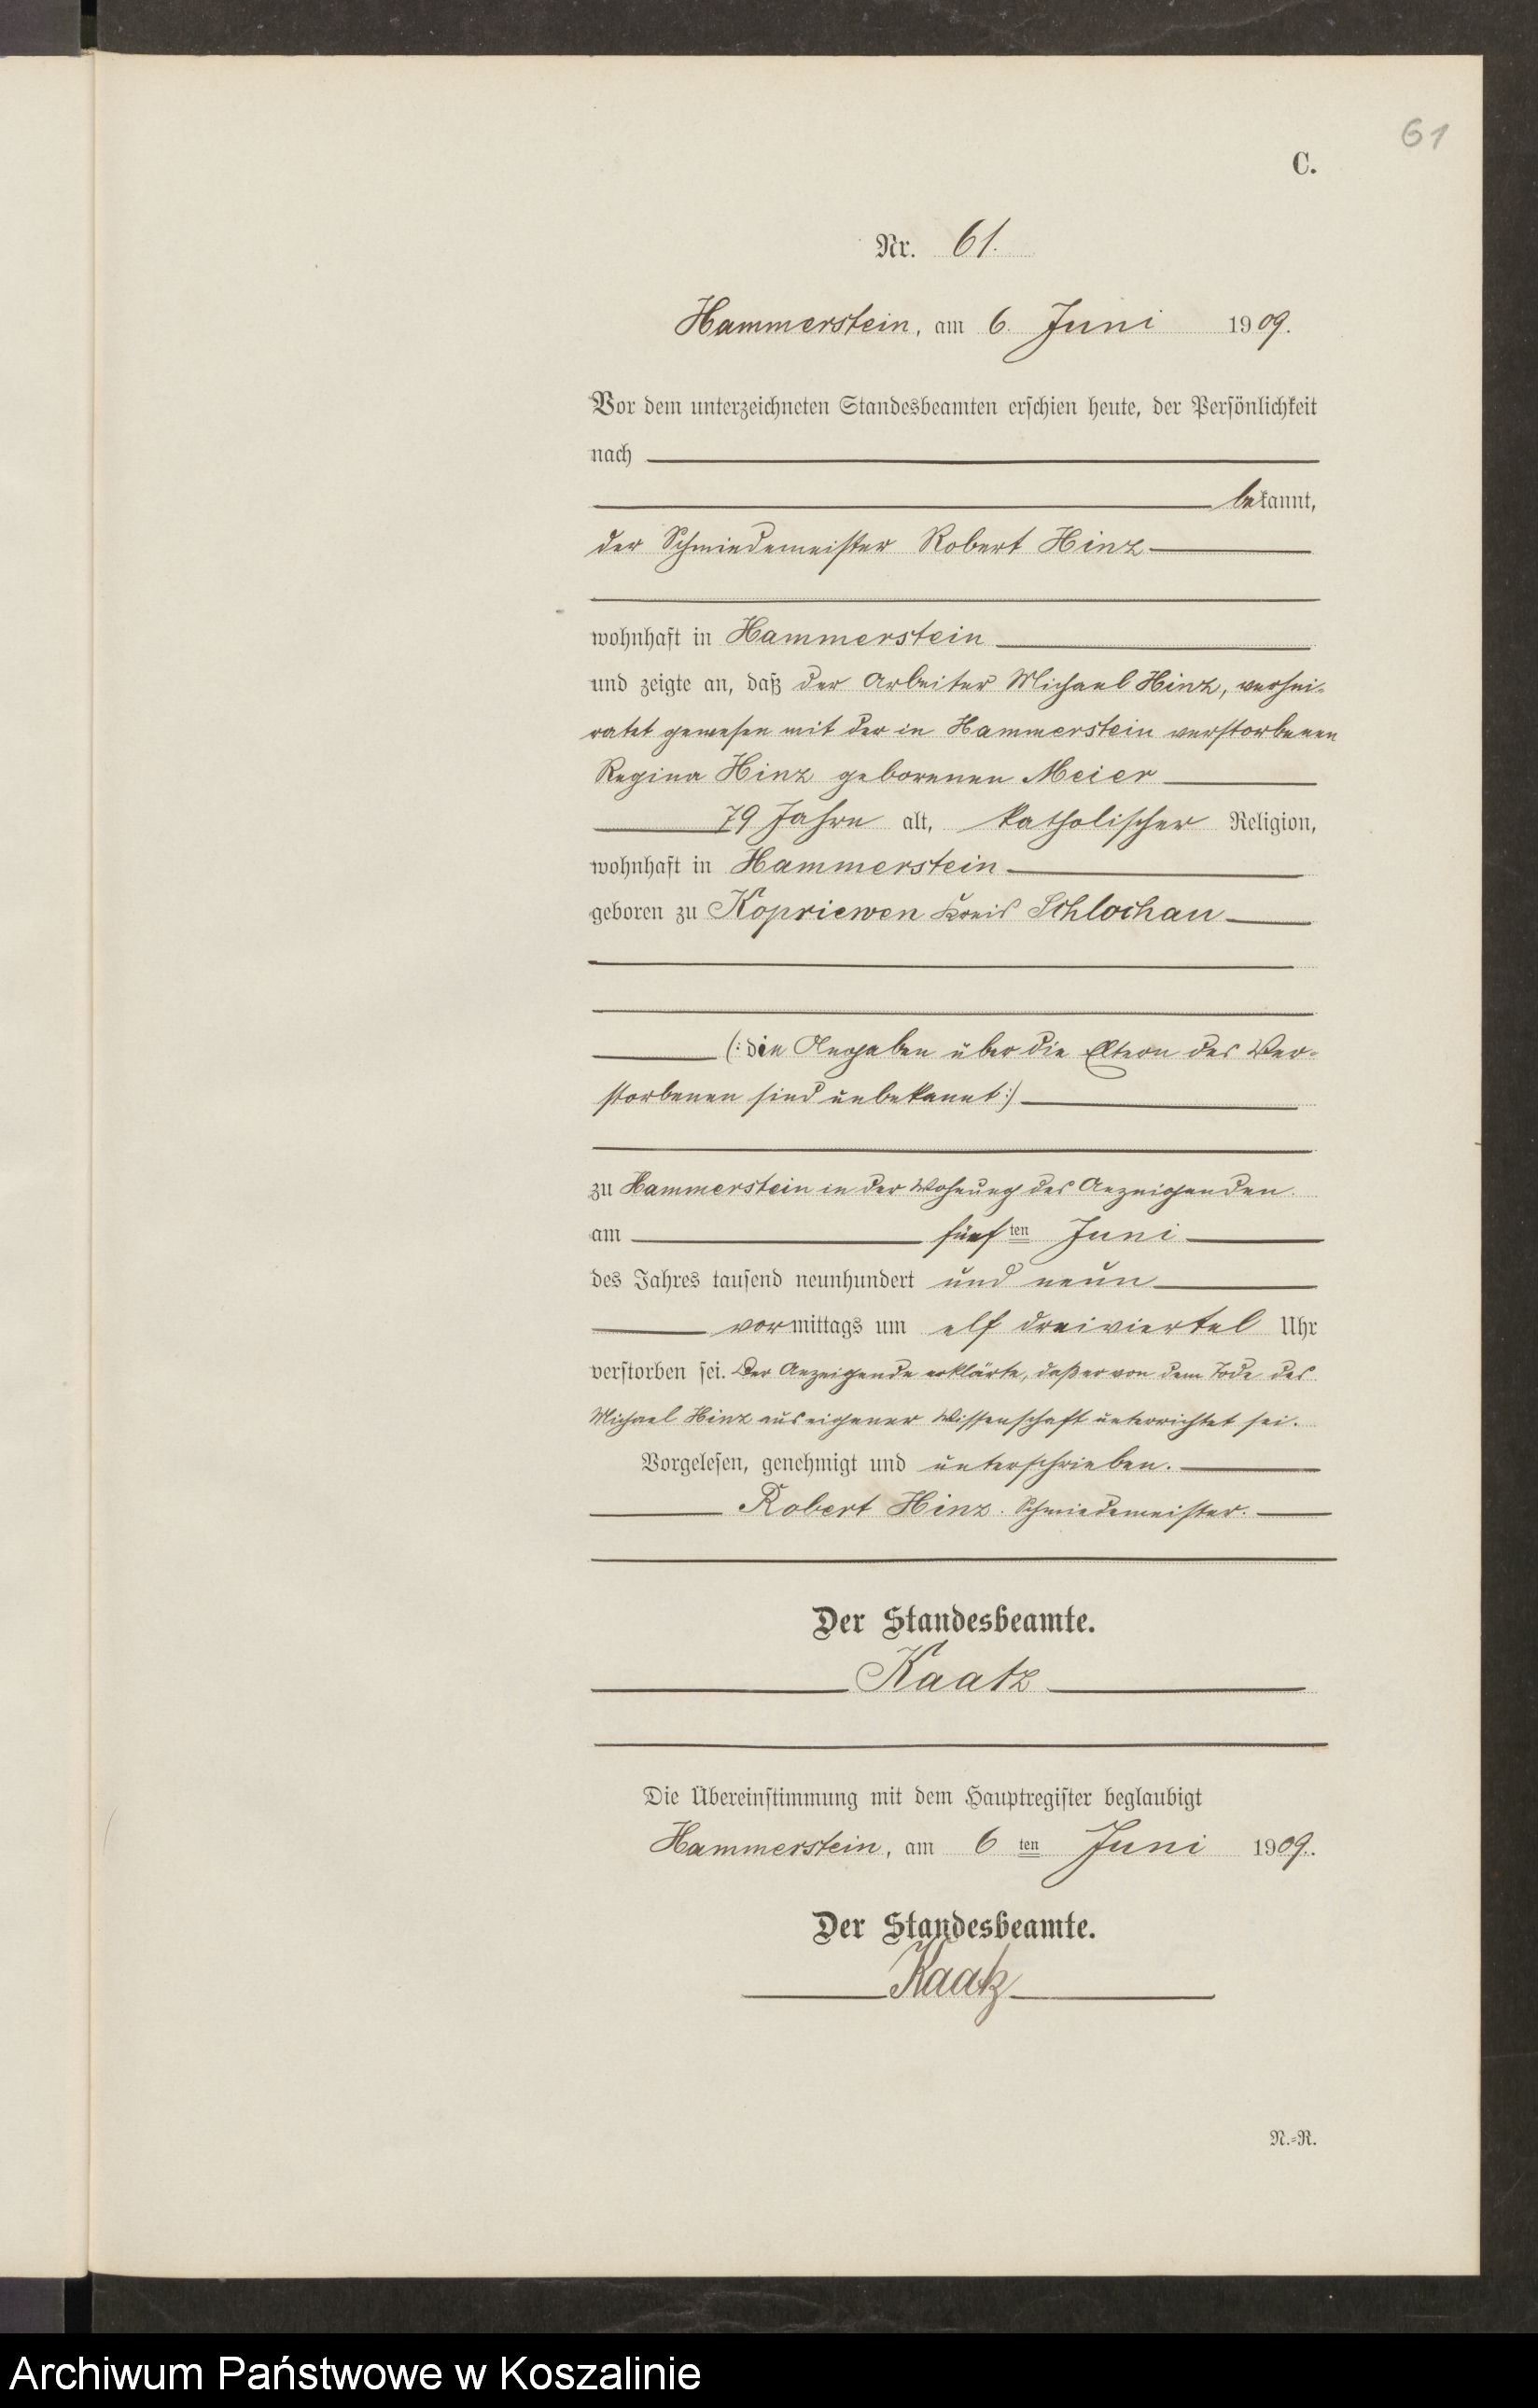 61
C.
Nr. 61.
Hammerstein, am 6. Juni 1909.
Vor dem unterzeichneten Standesbeamten erschien heute, der Persönlichkeit
nach
bekannt,
der Schmiedemeister Robert Hinz
wohnhaft in Hammerstein
und zeigte an, daß der Arbeiter Michael Hinz, verhei-
ratet gewesen mit der in Hammerstein verstorbenen
Regina Hinz geborenen Meier
79 Jahre alt, katholischer Religion,
wohnhaft in Hammerstein
geboren zu Kopriewen Kreis Schlochau
(: die Angaben über die Eltern des Ver-
storbenen sind unbekannt :)
zu Hammerstein in der Wohnung des Anzeigenden.
am fünften Juni
des Jahres tausend neunhundert und neun
vormittags um elf dreiviertel Uhr
verstorben sei. Der Anzeigende erklärte, daß er von dem Tode des
Michael Hinz aus eigener Wissenschaft unterrichtet sei.
Vorgelesen, genehmigt und unterschrieben.
Robert Hinz. Schmiedemeister.
Der Standesbeamte.
Kaatz
Die Übereinstimmung mit dem Hauptregister beglaubigt
Hammerstein, am 6ten Juni 1909.
Der Standesbeamte.
Kaatz
N.-R.
Archiwum Państwowe w Koszalinie